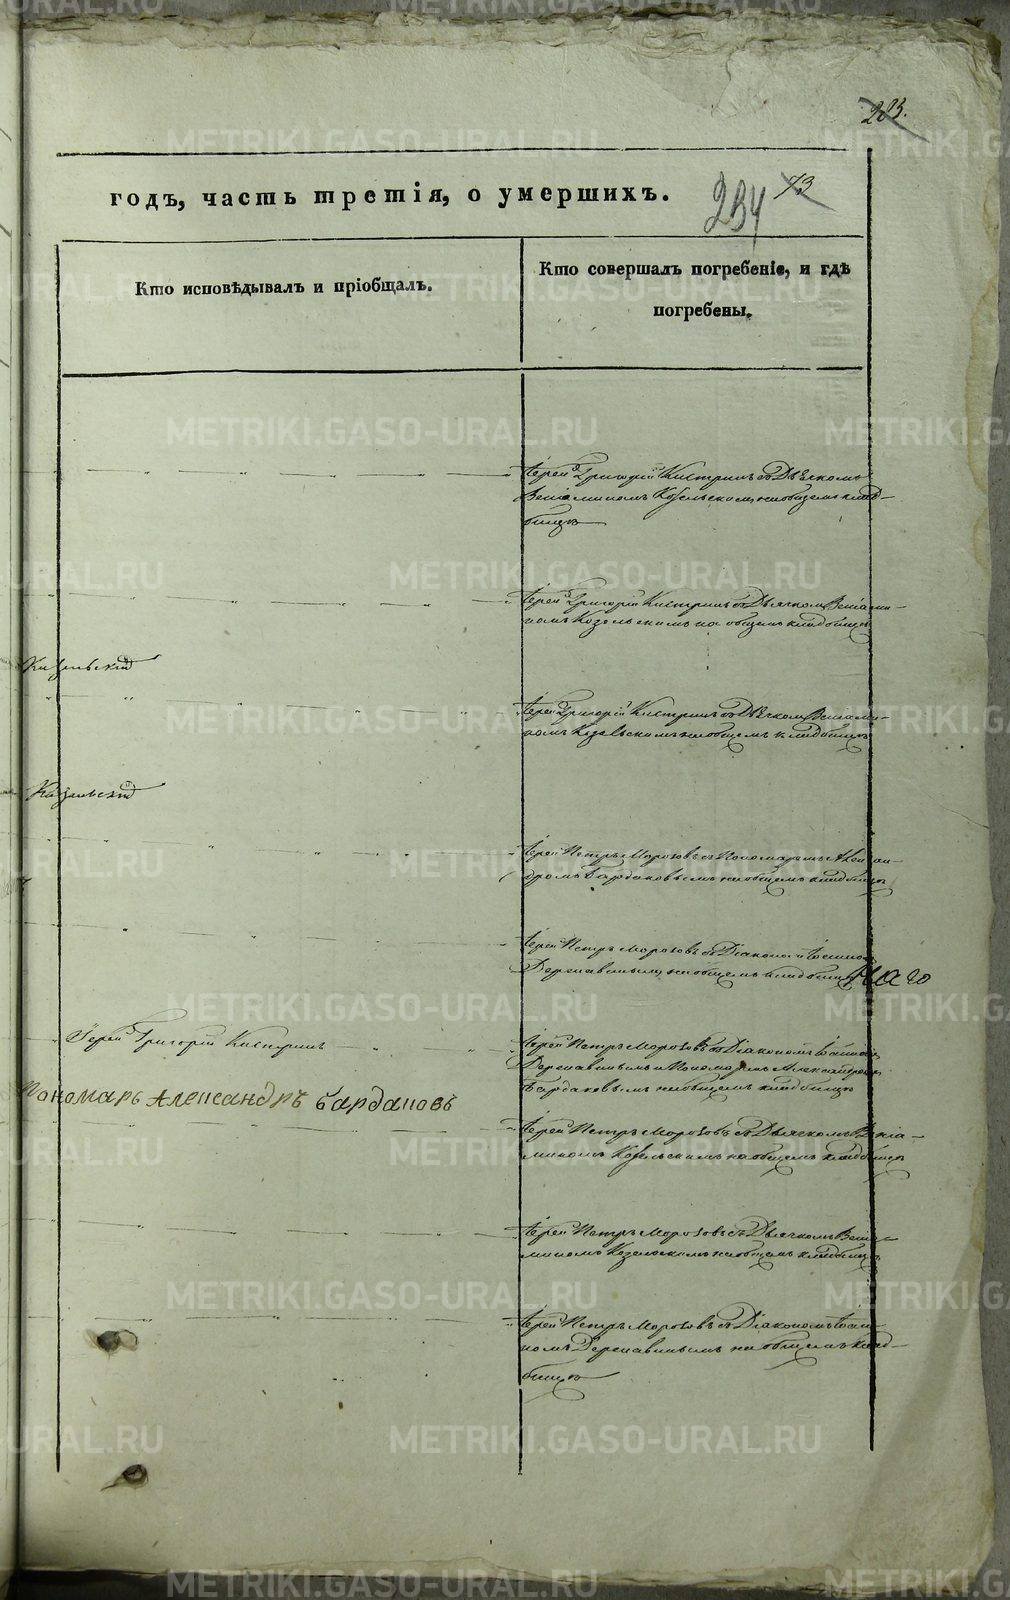 283.
годъ, часть третія, о умершихъ.
234 73
Кто исповѣдывалъ и пріобщалъ.
Кто совершалъ погребеніе, и гдѣ
погребены.
Іерей Григорій Кистринъ съ Дьячкомъ
Веніаминомъ Козельскимъ на общемъ клад-
бищѣ
Іерей Григорій Кистринъ съ Дьячкомъ Веніами-
номъ Козельскимъ на общемъ кладбищѣ
Козельскій
Іерей Григорій Кистринъ съ Дьячкомъ Веніами-
номъ Козельскимъ на общемъ кладбищѣ
Козельскій
Іерей Петръ Морозовъ съ Пономаремъ Алексан-
дромъ Бардаковымъ на общемъ кладбищѣ
Іерей Петръ Морозовъ съ Діакономъ Іоанномъ
на общемъ кладбищѣ
Іерей Григорій Кистринъ
Іерей Петръ Морозовъ съ Діакономъ Іоанномъ
и Пономаремъ Александромъ
Бардаковымъ на общемъ кладбищѣ
Пономарь Александръ Бардаковъ
Іерей Петръ Морозовъ съ Дьячкомъ Веніа-
миномъ Козельскимъ на общемъ кладбищѣ
Іерей Петръ Морозовъ съ Дьячкомъ Веніа-
миномъ Козельскимъ на общемъ кладбищѣ
Іерей Петръ Морозовъ съ Діакономъ Іоан-
номъ на общемъ клад-
бищѣ
METRIKI.GASO-URAL.RU